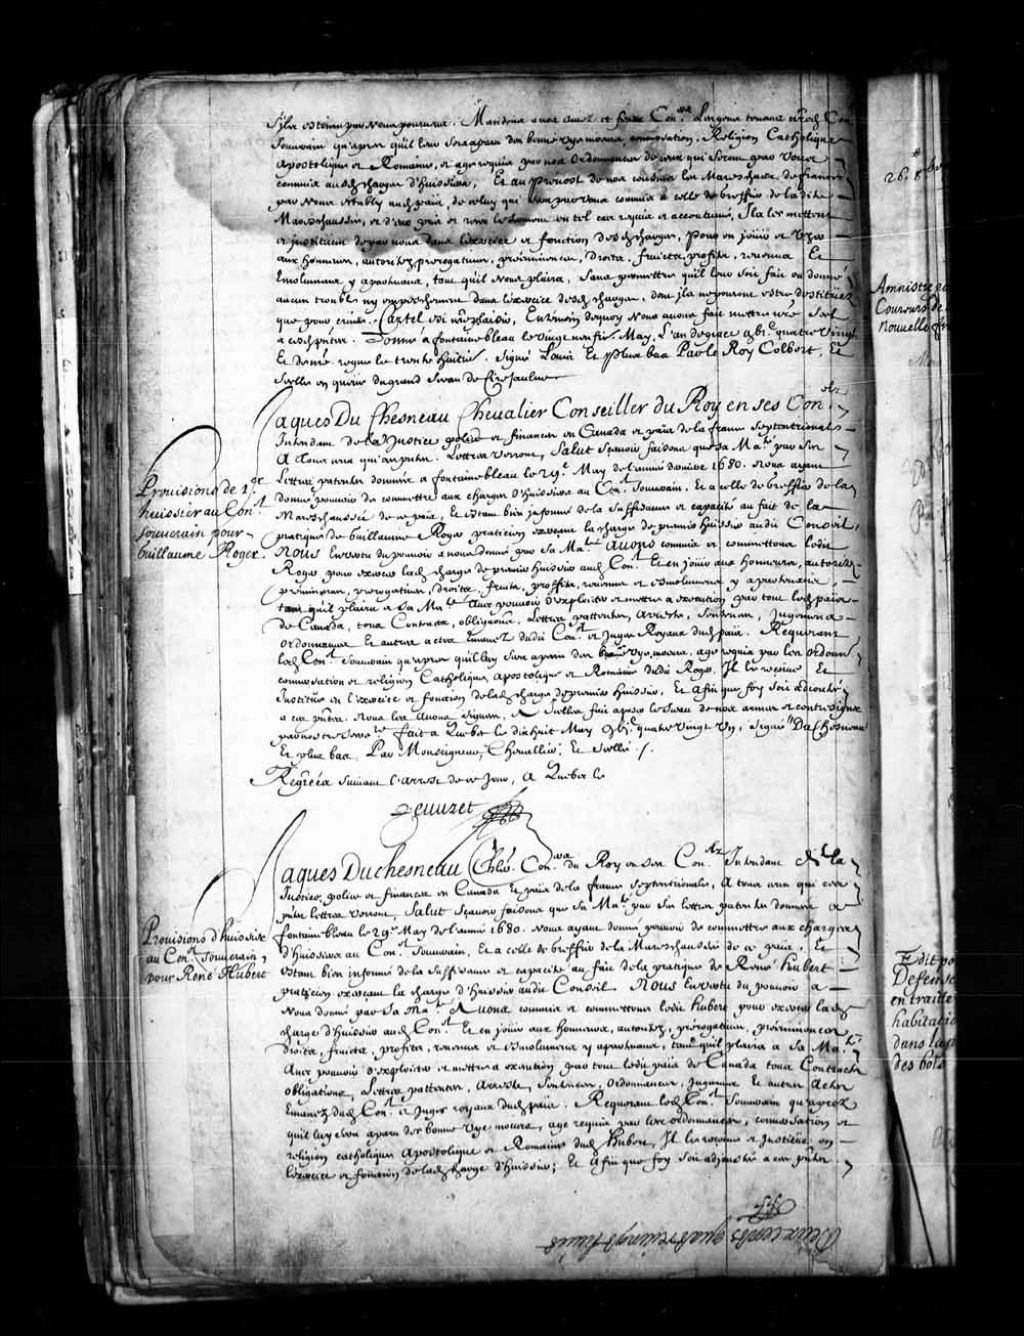 s'il en estoit par nous pourveu. Mandons a nos amez et feaux Con.ers les gens tenans n're d. Con.
Souverain qu'apres qu'il leur sera aparu des bonne vye moeurs, conversation, Religion Catholique
Apostolique et Romaine, et age requis par nos Ordonnances de ceux qui seront par vous
commis ausd. charges d'huissiers, Et au prevost de nos cousins les Mareschaux de france
par nous estably aud. païs, de celuy qui sera pourveu commis a celle de Greffier de lad.
Mareschaussée, et d'eux pris et receu le serment en tel cas requis et accoutumé, Ils les mettent
et instituent de par nous dans l'exercice et fonction desd. charges, pour en joüir et user
aux honneurs, autoritez, prerogatives, préeminences, droits, fruicts, profits, revenus Et
Emolumens y apartenans, tant qu'il nous plaira, sans permettre qu'il leur soit fait ou donné
aucun trouble ny empeschement dans l'exercice desd. charges, dont ils ne pouront estre destituez
que pour crimes. Car tel est n're plaisir, En tesmoin dequoy Nous avons fait mettre n're Scel
a cesd. p'ntes. Donné a fontainebleau le vingt neuf.e May, L'an de grace g bi.c quatre vingt
Et de n're regne le trente huitie. Signé Louis Et plus bas Par le Roy Colbert, Et
Scellé en queüe du grand Sceau de Cire jaulne
Jaques Du Chesneau Chevalier Conseiller du Roy en ses Con.ls
Intendant de la Justice police et finances en Canada et païs de la france Septentrionale
A Tous ceux qui ces p'ntes Lettres verront, Salut Sçavoir faisons que sa Ma.té par ses
Lettres patentes données a fontainebleau le 29.e May de l'année derniere 1680. nous ayant
donné pouvoir de commettre aux charges d'Huissiers au Con.l Souverain, Et a celle de Greffier de la
Mareschaussée de ce païs, Et Estans bien informé de la suffisance et capacité au fait de la
pratique de Guillaume Roger praticien exerçant la charge de premier Huissier audit Conseil,
Nous En vertu du pouvoir a nous donné par Sa Ma.té Avons commis et commettons ledit
Roger pour exercer lad. charge de premier Huissier aud. Con.l Et en joüir aux honneurs, autoritez,
préeminences, prerogatives, droits, fruits, proffits, revenus et Emolumens y apartenans,
tant qu'il plaira a Sa Ma.té Aux pouvoir d'exploiter et mettre a execution par tout led. païs
de Canada, tous Contracts, obligations, Lettres pattentes, Arrests, Sentences, Jugemens
Ordonnances Et autres actes Emanez dudit Con.l et Juges Royaux dud. païs. Requerant
led. Con.l Souverain qu'apres qu'il luy sera aparu des bonne vye, moeurs, age requis par les Ordonn.
conversation et religion Catholique, Apostolique et Romaine dudit Roger, Il le reçoive Et
Institüe en l'exercice et fonction de lad. charge de premier Huissier, Et afin que foy soit adjoutée
a ces p'ntes. Nous les avons signées, & a icelles fait aposer le Sceau de nos armes et contresigner
par nostre Secre.re fait a Quebec le dix huit May g bi.c quatre vingt un, Signé Du Chesneau
Et plus bas Par Monseigneur, Chevallier, Et Scellé /.
Regrées Suivant l'arrest de ce jour, A Quebec le
Peuvret
Provisions de 1.er
huissier au Con.l
souverain pour
Guillaume Roger.
Jaques Duchesneau Ch'lier. Con.er du Roy en ses Con.ls Intendant de la
Justice, police et finances en Canada Et païs de la france Septentrionale, A tous ceux qui ces
p'ntes lettres verront, Salut Sçavoir faisons que Sa Ma.té par ses lettres patentes données a
fontainebleau le 29.e May de l'année 1680. Nous ayant donné pouvoir de commettre aux charges
d'Huissiers au Con.l Souverain, Et a celle de Greffier de la Mareschaussée de ce païs, Et
Estans bien informé de la Suffisance et capacité au fait de la pratique de René Hubert
praticien exerçant la charge d'Huissier audit Conseil. Nous En vertu du pouvoir a
Nous donné par Sa Ma.té Avons commis et commettons ledit Hubert pour exercer lad.
charge d'Huissier aud. Con.l Et en joüir aux honneurs, autoritez, prérogatives, préeminences
droits, fruicts, profits, revenus et Emolumens y apartenans, tant qu'il plaira a Sa Ma.té
Aux pouvoir d'exploiter et mettre a execution par tout ledit païs de Canada tous Contracts
obligations, Lettres pattentes, Arrests, Sentences, Ordonnances, Jugemens Et autres Actes
Emanez dud. Con.l et Juges royaux dud. païs. Requerant led. Con.l Souverain qu'apres
qu'il luy sera aparu des bonne vye moeurs, age requis par les ordonnances, conversation et
religion catholique Apostolique et Romaine dud. Hubert, Il le reçoive et Institüe en
l'exercice et fonction de lad. charge d'Huissier; Et Afin que foy soit adjoustée a ces p'ntes.
Provisions d'huissier
au Con.l Souverain
pour René Hubert
Deux cents quatre vingt huit
26.
Amnistie
Coureurs de
nouvelle fr
Edit po
Defense
en traitte
habitatio
dans la
des bois